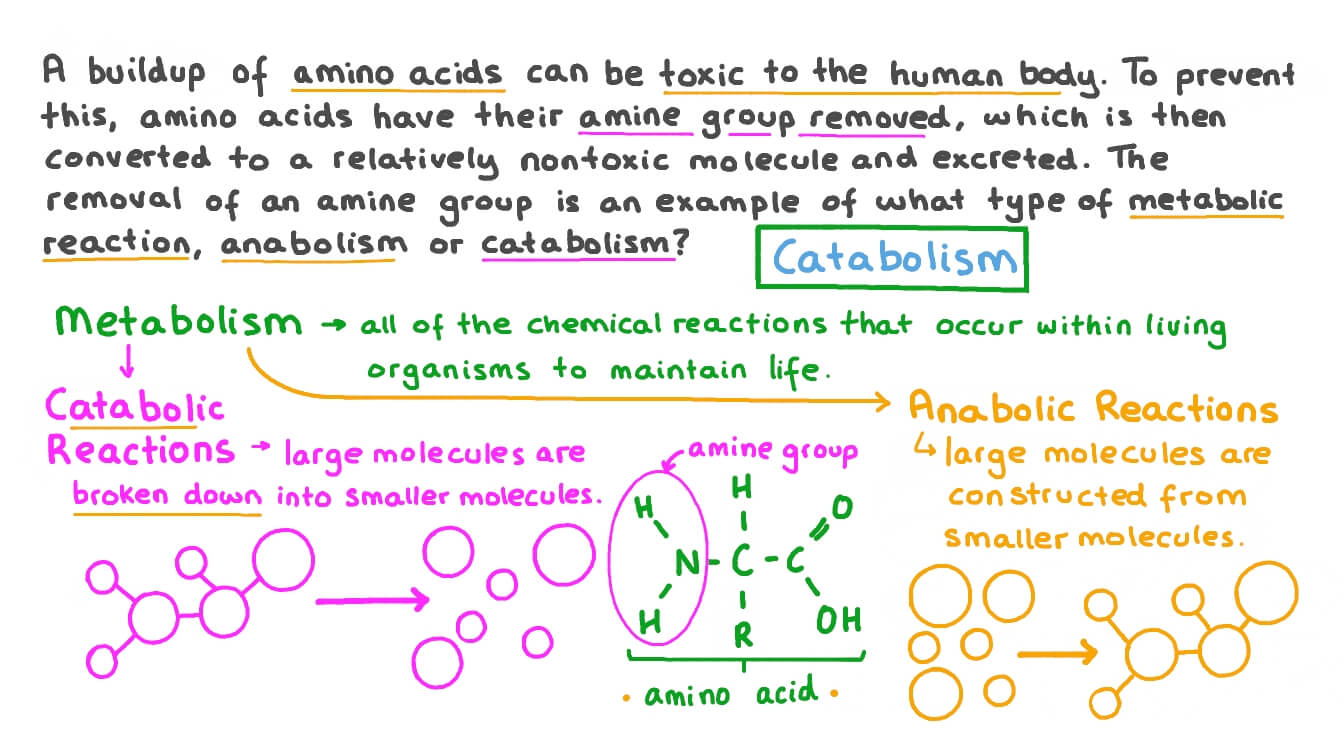 A buildup of amino acids can be toxic to the human body. To prevent
this, amino acids have their amine group removed, which is then
converted to a relatively nontoxic molecule and excreted. The
removal of an amine group is an example of what type of metabolic
reaction, anabolism or catabolism?
Catabolism
Metabolism → all of the chemical reactions that occur within living
organisms to maintain life.
Catabolic
Reactions → large molecules are
broken down into smaller molecules.
amine group
H
H
N - C - C
O
H
R
OH
amino acid
Anabolic Reactions
↳ large molecules are
constructed from
smaller molecules.